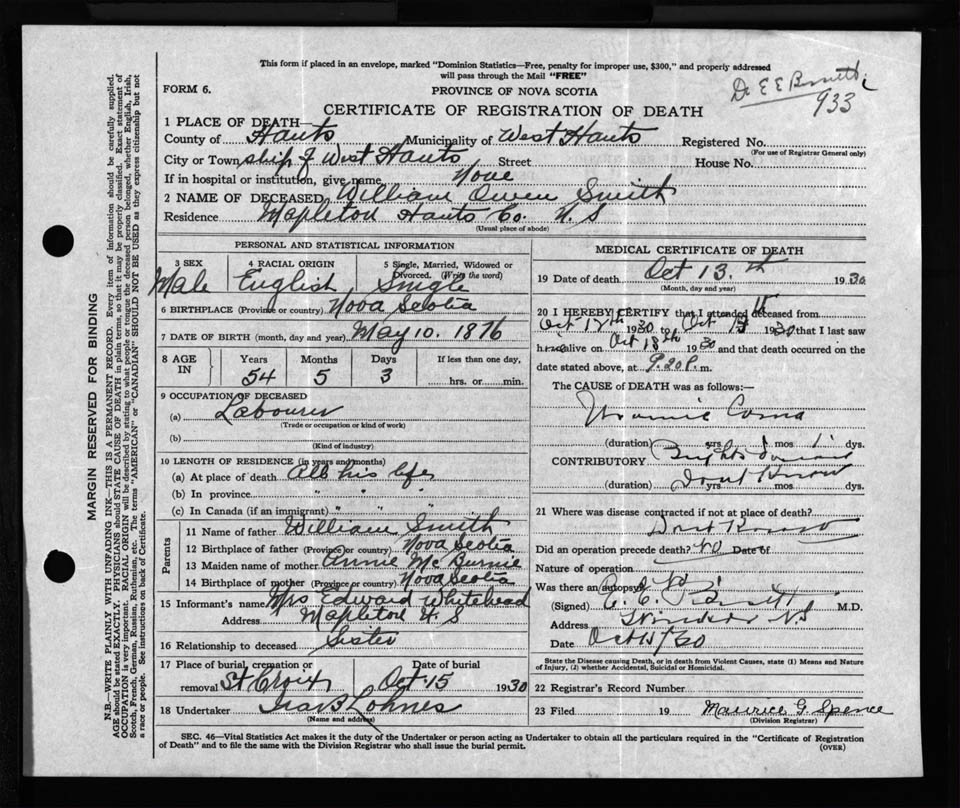 This form if placed in an envelope, marked "Dominion Statistics—Free, penalty for improper use, $300," and properly addressed
will pass through the Mail "FREE"
Dr E E B
933
FORM 6.
PROVINCE OF NOVA SCOTIA
CERTIFICATE OF REGISTRATION OF DEATH
1 PLACE OF DEATH—
County of Hants Municipality of West Hants Registered No.
(For use of Registrar General only)
City or Town ship of West Hants Street House No.
If in hospital or institution, give name None
2 NAME OF DECEASED William Owen Smith
Residence Mapleton Hants Co. N. S
(Usual place of abode)
PERSONAL AND STATISTICAL INFORMATION
3 SEX
Male
4 RACIAL ORIGIN
English
5 Single, Married, Widowed or
Divorced. (Write the word)
Single
6 BIRTHPLACE (Province or country) Nova Scotia
7 DATE OF BIRTH (month, day and year) May 10. 1876
8 AGE
IN
Years
54
Months
5
Days
3
If less than one day,
hrs. or min.
9 OCCUPATION OF DECEASED
(a) Labourer
(Trade or occupation or kind of work)
(b)
(Kind of industry)
10 LENGTH OF RESIDENCE (in years and months)
(a) At place of death All his life
(b) In province " " "
(c) In Canada (if an immigrant) " " "
Parents
11 Name of father William Smith
12 Birthplace of father (Province or country) Nova Scotia
13 Maiden name of mother Annie Mc Burnie
14 Birthplace of mother (Province or country) Nova Scotia
15 Informant's name Mrs Edward Whitehead
Address Mapleton N. S
16 Relationship to deceased Sister
17 Place of burial, cremation or
removal St Croix
Date of burial
Oct 15 1930
18 Undertaker Ira B Lohnes
(Name and address)
MEDICAL CERTIFICATE OF DEATH
19 Date of death Oct 13th 1930
(Month, day and year)
20 I HEREBY CERTIFY that I attended deceased from
Oct 12th 1930 to Oct 13th 1930 that I last saw
him alive on Oct 13th 1930 and that death occurred on the
date stated above, at 9.20 P. m.
The CAUSE OF DEATH was as follows:—
Uraemic Coma
(duration) yrs. mos. 1 dys.
CONTRIBUTORY Brights Disease
(duration) Dont Know yrs. mos. dys.
21 Where was disease contracted if not at place of death?
Dont Know
Did an operation precede death? No Date of
Nature of operation
Was there an autopsy? No
(Signed) E. E. M.D.
Address Windsor N.S
Date Oct 15/30
State the Disease causing Death, or in death from Violent Causes, state (1) Means and Nature
of Injury, (2) whether Accidental, Suicidal or Homicidal.
22 Registrar's Record Number
23 Filed 19 Maurice G. Spence
(Division Registrar)
SEC. 46—Vital Statistics Act makes it the duty of the Undertaker or person acting as Undertaker to obtain all the particulars required in the "Certificate of Registration
of Death" and to file the same with the Division Registrar who shall issue the burial permit.
(OVER)
MARGIN RESERVED FOR BINDING
N.B.—WRITE PLAINLY WITH UNFADING INK—THIS IS A PERMANENT RECORD. Every item of information should be carefully supplied.
AGE should be stated EXACTLY. PHYSICIANS should STATE CAUSE OF DEATH in plain terms, so that it may be properly classified. Exact statement of
OCCUPATION is very important. RACIAL ORIGIN will be described by stating to what people or tongue the deceased person belonged, whether English, Irish,
Scotch, French, German, Russian, Ruthenian, etc. The terms "AMERICAN" or "CANADIAN" SHOULD NOT BE USED as they express citizenship but not
a race or people. See instructions on back of Certificate.